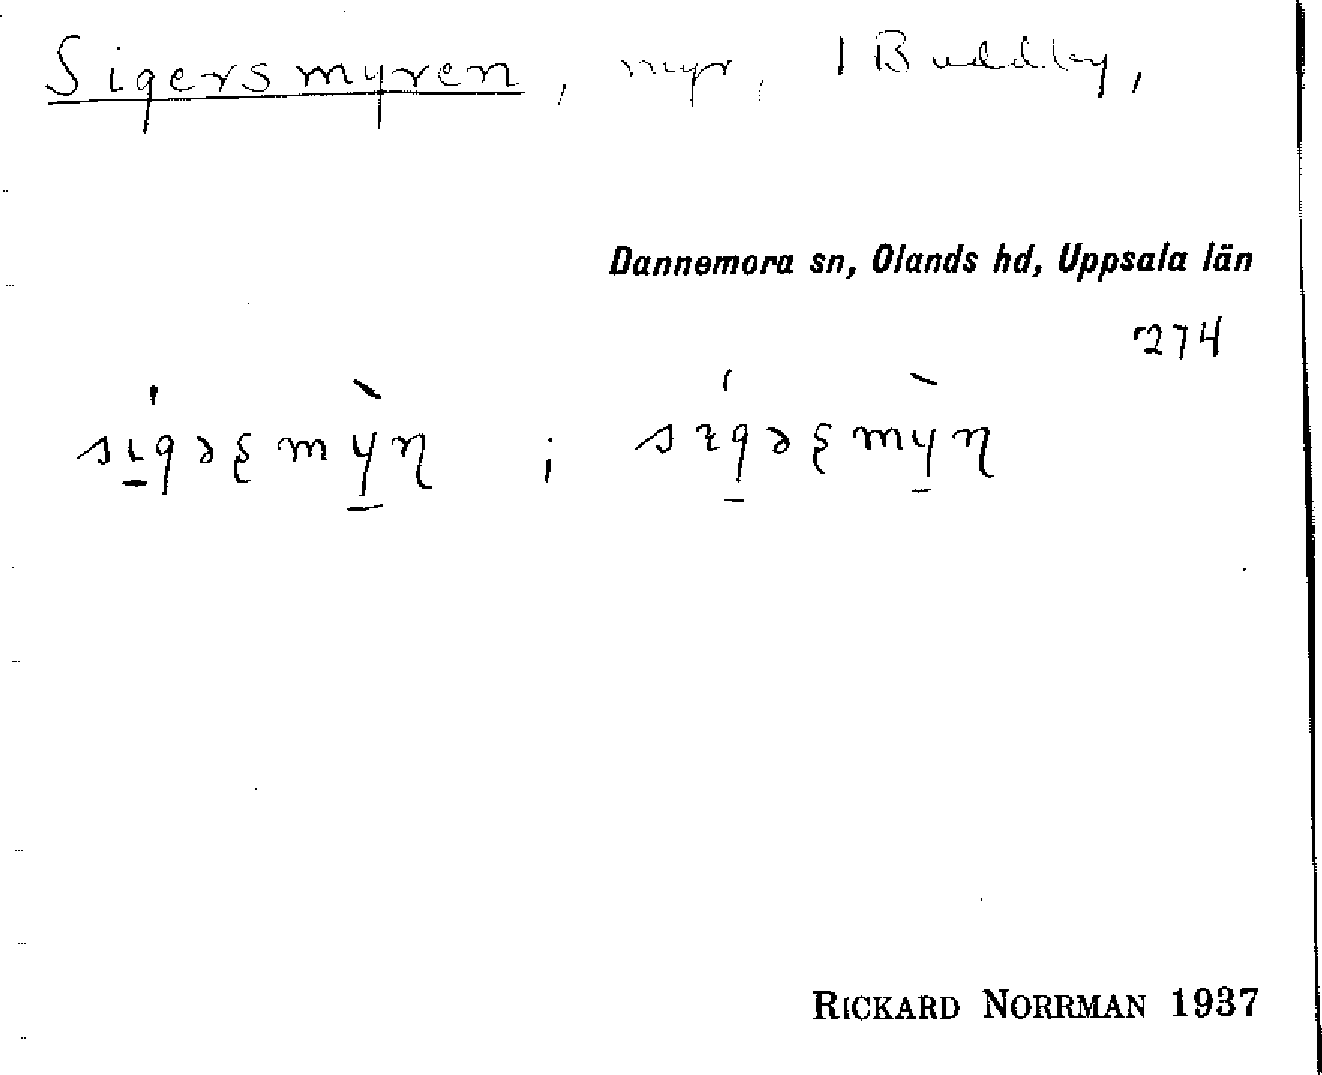 Sigersmyren, myr, i Buddby,
Dannemora sn, Olands hd, Uppsala län
274
RICKARD NORRMAN 1937